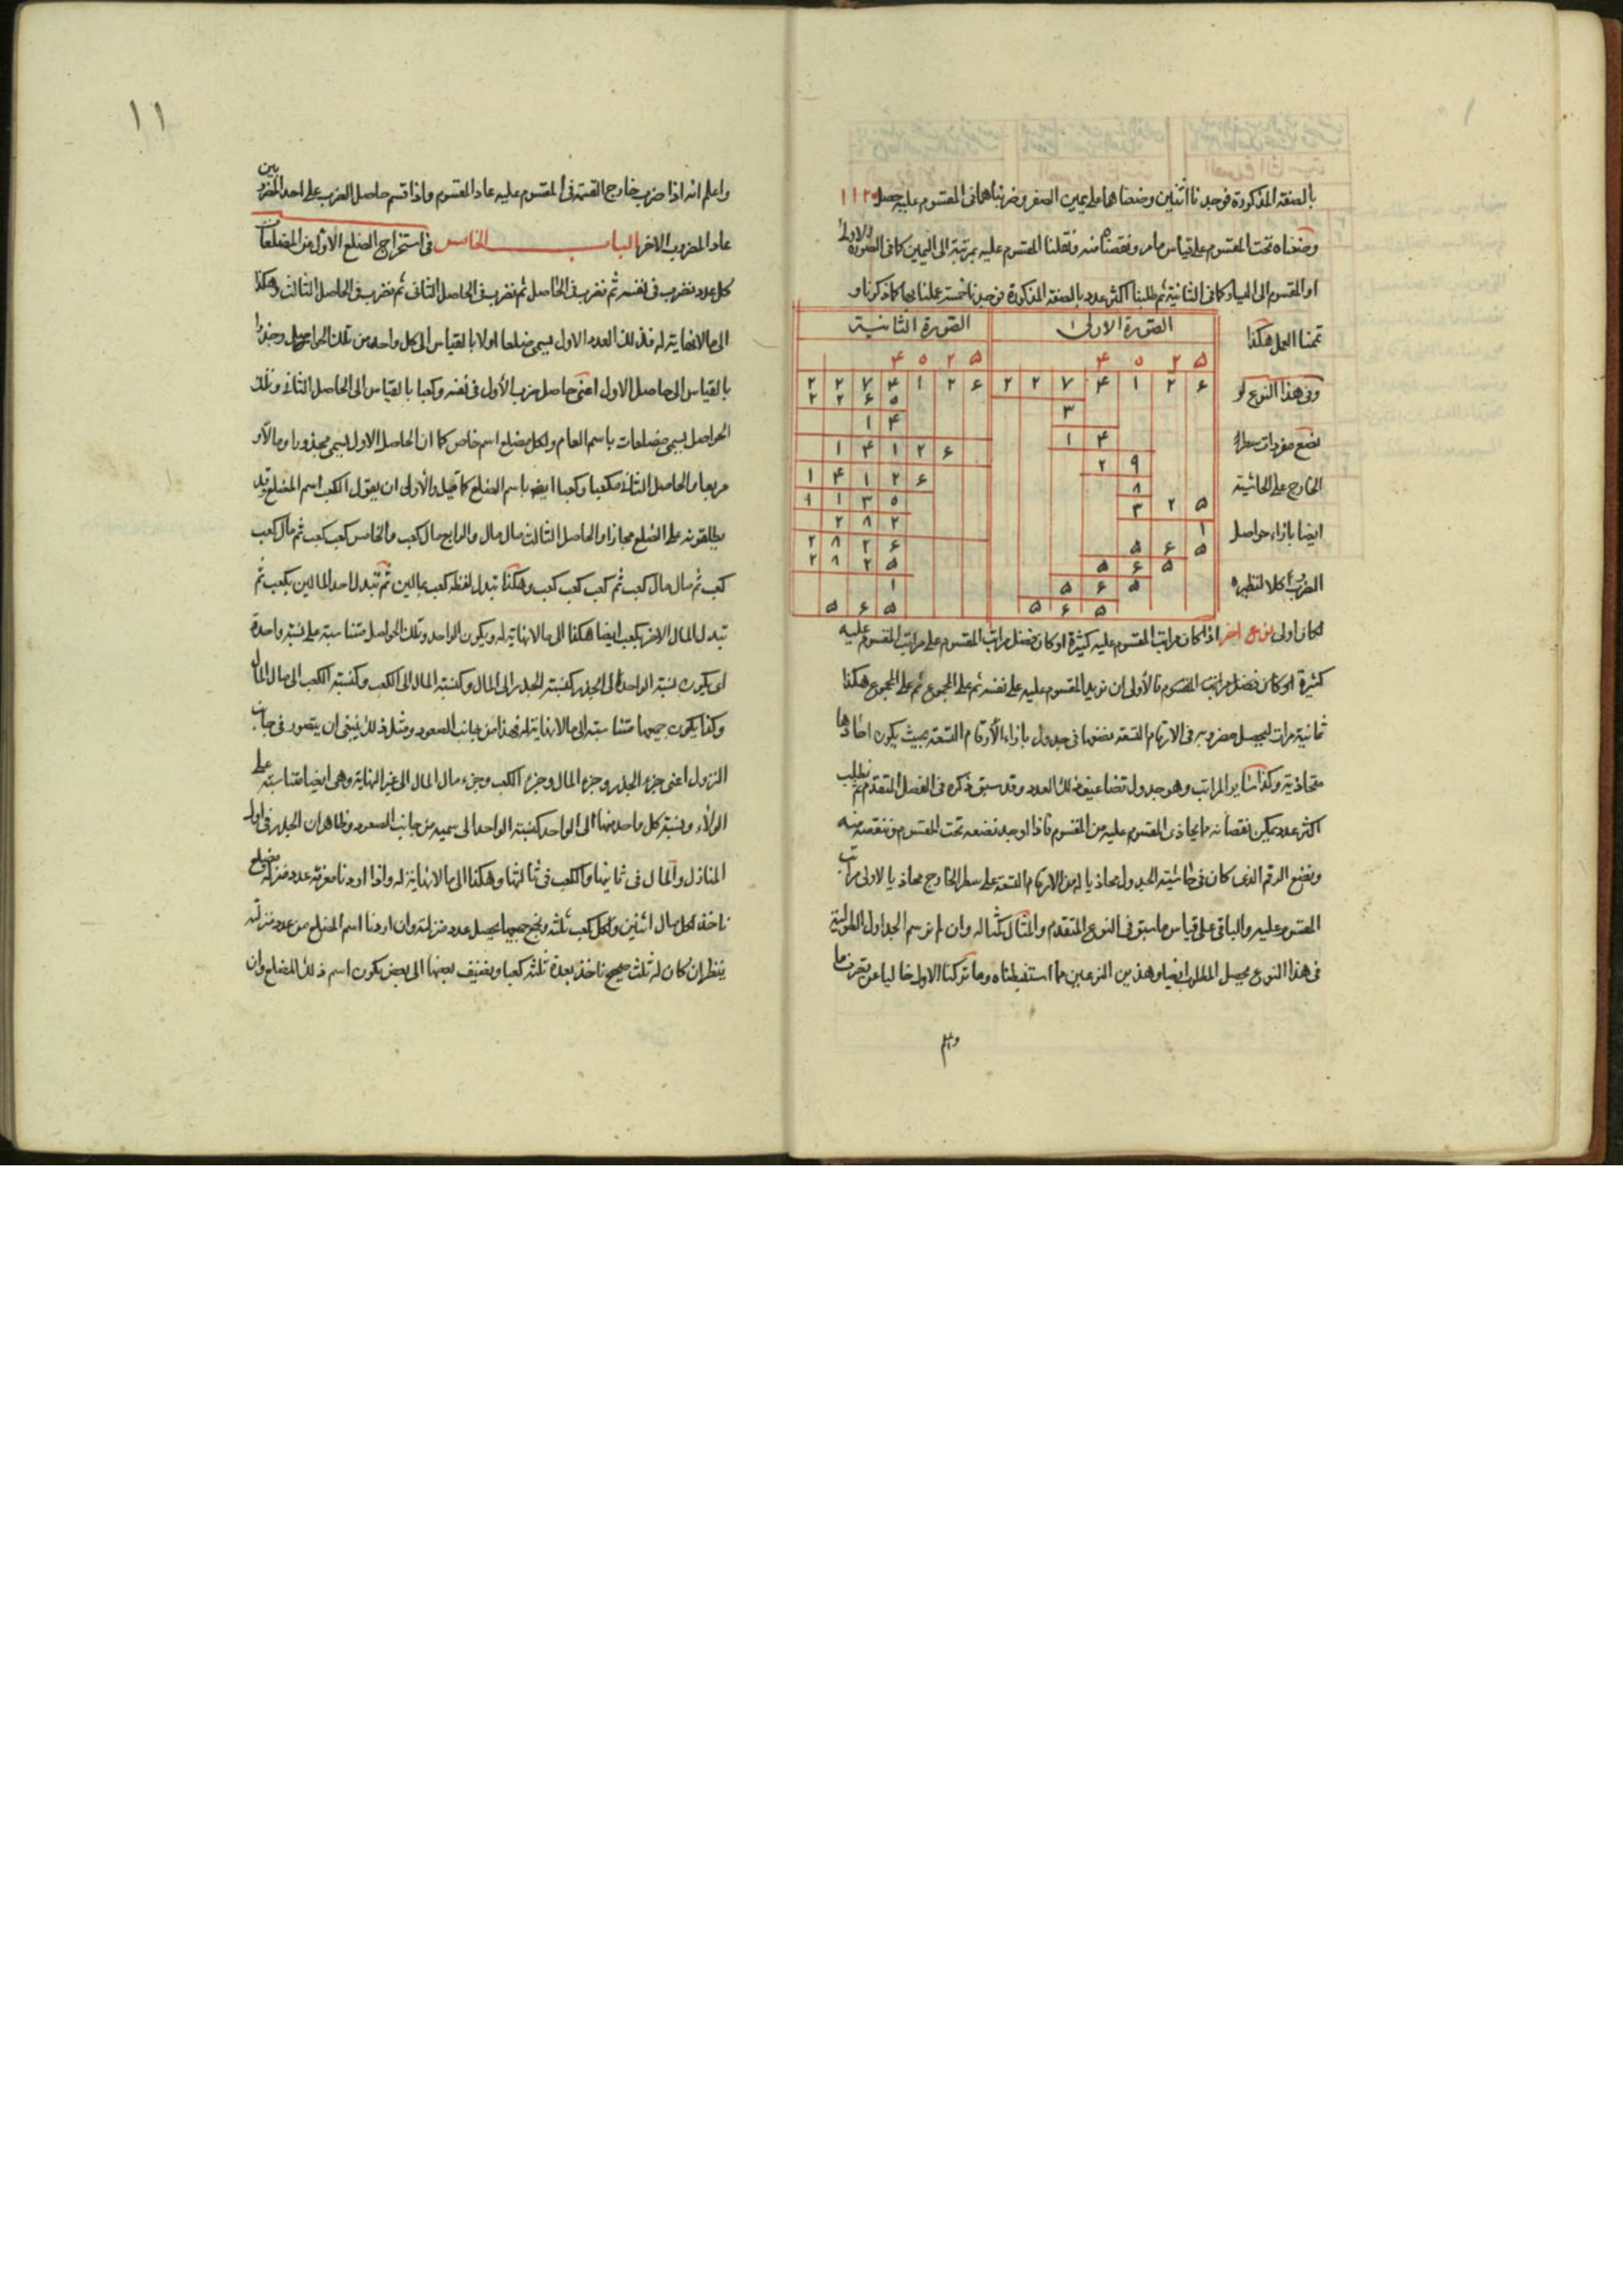 بالصفة المذكورة فوجدنا اثنين وضعناهما على يمين الصفر وضربناهما فى المقسوم عليه حصل
وضعناه تحت المقسوم على قياس ما مر ونقصناه منه فنقلنا المقسوم عليه بمرتبة الى اليمين كما فى الصورة الاولى
او المقسوم الى اليسار كما فى الثانية ثم طلبنا اكثر عدد بالصفة المذكورة فوجدنا خمسة عملنا بها كما ذكرنا و
تممنا العمل هكذا
الصورة الاولى
الصورة الثانية
۴ ۵ ۲ ۵
۴ ۵ ۲ ۵
۲ ۲ ۷ ۴ ۱ ۲ ۶
۲ ۲ ۷ ۴ ۱ ۲ ۶
وفى هذا النوع لو
نضع مفردات سطر
الخارج على الحاشية
ايضا بازاء حواصل
الضرب كلا لنظيره
لكان اولى نوع اخر اذا كان مراتب المقسوم عليه كثيرة او كان فضل مراتب المقسوم على مراتب المقسوم عليه
كثيرة او كان فضل مراتب المقسوم فالأولى ان نزيد المقسوم عليه على نفسه ثم على المجموع ثم على المجموع هكذا
ثمانية مرات ليحصل مضروبه فى الارقام التسعة نضعها فى جدول بازاء الأرقام التسعة بحيث يكون احادها
متحاذية وكذا سائر المراتب وهو جدول تضاعيف ذلك العدد وقد سبق ذكره فى الفصل المتقدم ثم نطلب
اكثر عدد يمكن نقصانه مما يحاذى المقسوم عليه من المقسوم فاذا وجد نضعه تحت المقسوم وننقصه منه
ونضع الرقم الذى كان فى حاشية الجدول محاذيا له من الارقام التسعة على سطر الخارج محاذيا لاولى مراتب
المقسوم عليه والباقى على قياس ما سبق فى النوع المتقدم والمثال كمثاله وان لم نرسم الجداول الطولية
فى هذا النوع يحصل المطلوب ايضا وهذين النوعين مما استنبطناه وما تركنا الاول خاليا عن تصرف ما
واعلم
۱۱
واعلم انه اذا ضرب خارج القسمة فى المقسوم عليه عاد المقسوم واذا قسم حاصل الضرب على احد المضروبين
عاد المضروب الاخر الباب الخامس فى استخراج الضلع الاول من المضلعات
كل عدد نضرب فى نفسه ثم نضرب فى الحاصل ثم نضرب فى الحاصل الثانى ثم نضرب فى الحاصل الثالث وهكذا
الى ما لا نهاية له فذلك العدد الاول يسمى ضلعا اولا بالقياس الى كل واحد من تلك الحواصل وجذرا
بالقياس الى حاصل الاول اعنى حاصل ضرب الأول فى نفسه وكعبا بالقياس الى الحاصل الثانى وتلك
الحواصل يسمى مضلعات باسم العام ولكل مضلع اسم خاص كما ان الحاصل الاول يسمى مجذورا ومالا و
مربعا والحاصل الثانى مكعبا وكعبا ايضا باسم الضلع كما قيل والأولى ان يقول الكعب اسم المضلع وقد
يطلقونه على الضلع مجازا والحاصل الثالث مال مال والرابع مال كعب والخامس كعب كعب ثم مال كعب
كعب ثم مال مال كعب ثم كعب كعب كعب وهكذا تبدل لفظ كعب بمالين ثم تبدل احد المالين بكعب ثم
تبدل المال الاخر بكعب ايضا هكذا الى ما لا نهاية له ويكون الواحد وتلك الحواصل متناسبة على نسبة واحدة
اى يكون نسبة الواحد الى الجذر كنسبة الجذر الى المال وكنسبة المال الى الكعب وكنسبة الكعب الى مال المال
وكذا يكون جميعها متناسبة الى ما لا نهاية له فهذا من جانب الصعود ومثل ذلك ينبغى ان يتصور فى جانب
النزول اعنى جزء الجذر وجزء المال وجزء الكعب وجزء مال المال الى غير النهاية وهى ايضا متناسبة على
الولاء ونسبة كل واحد منها الى الواحد كنسبة الواحد الى سميه من جانب الصعود وظاهر ان الجذر فى اول
المنازل والمال فى ثانيها والكعب فى ثالثها وهكذا الى ما لا نهاية له واذا اردنا معرفة عدد منزلة مضلع
ناخذ لكل مال اثنين ولكل كعب ثلثة ونجمع جميعها يحصل عدد منزلته وان اردنا اسم المضلع من عدد منزلته
ينظر ان كان له ثلث صحيح ناخذ بعدة ثلثه كعبا ونضيف بعضها الى بعض يكون اسم ذلك المضلع وان